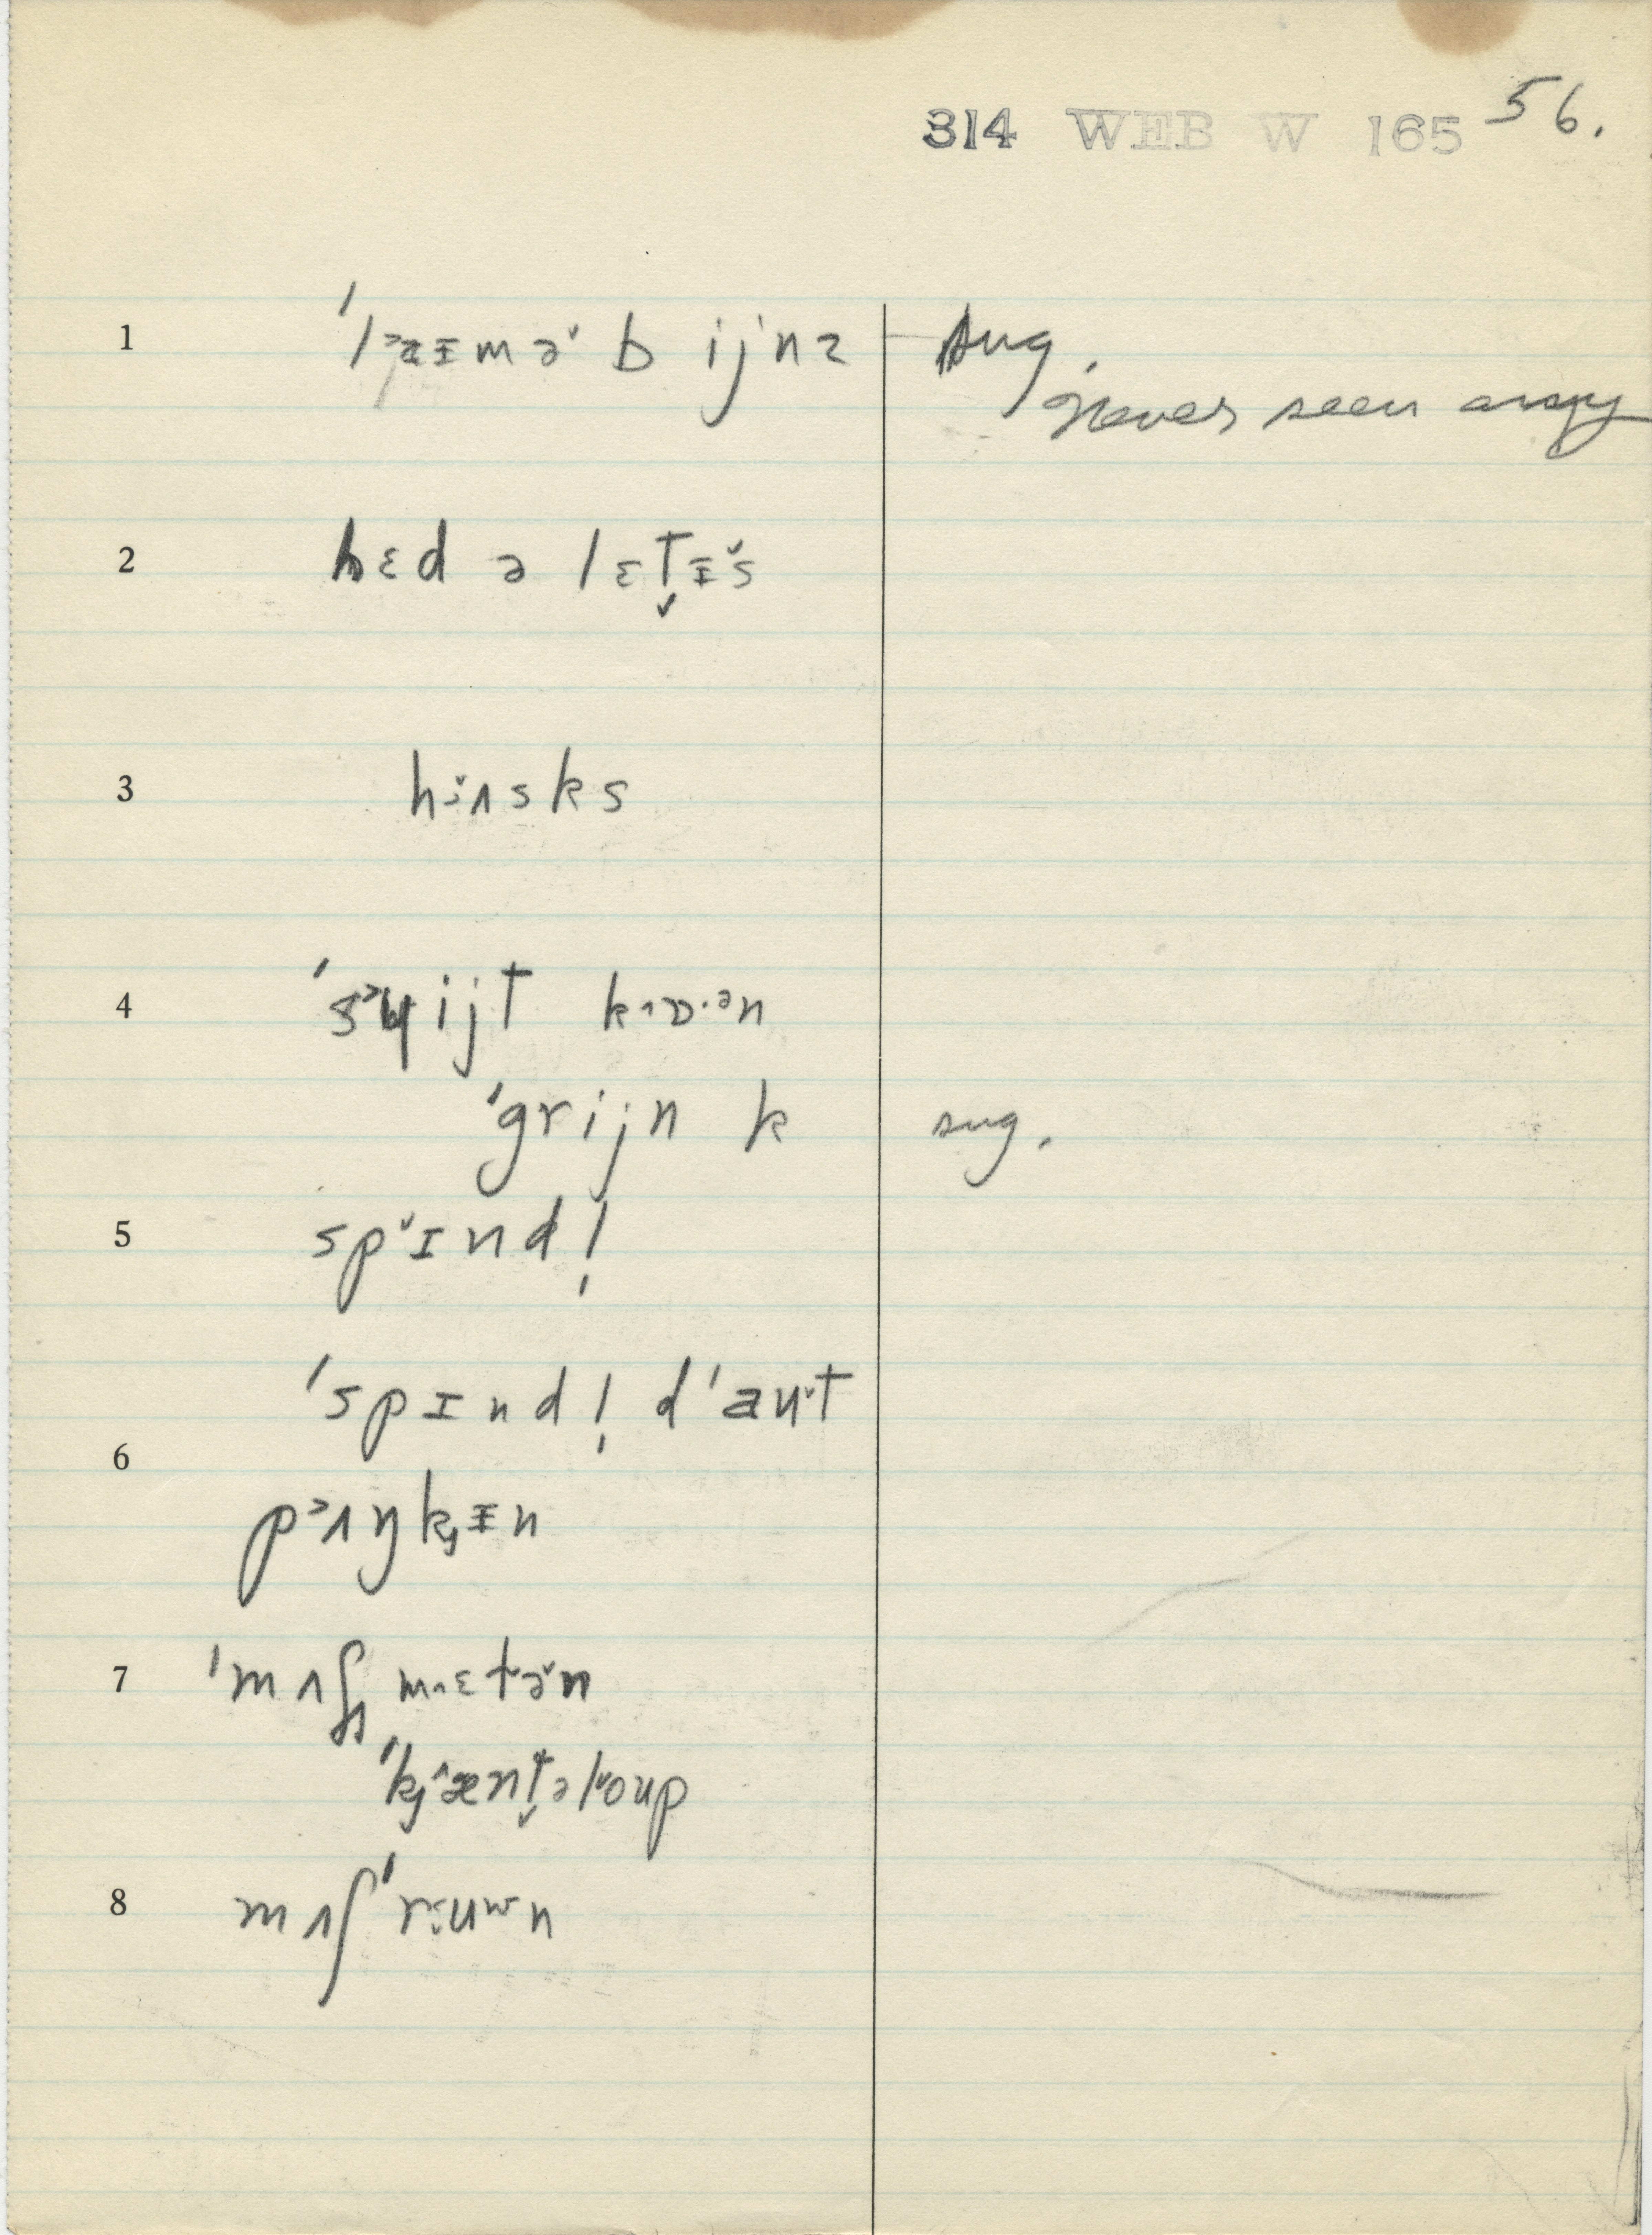 314 WEB W 165 56.
1 ˈl˃aɪmə˅ b ijnz sug.
never seen any
2 hɛd ə lɛt̬ɪ˅s
3 hi̯˅ʌsks
4 ˈs˃ɥijt k˄ɒ·ᵊn
ˈgrijn k sug.
5 sp˅ɪndl̩
ˈspɪndl̩ dˈaʊ˅t
6 p˃ʌŋkɪn
7 ˈmʌʃ m˄ɛt˅ə˅n
ˈkj˄ænt̬əl˅oup
8 mʌʃˈriuwn